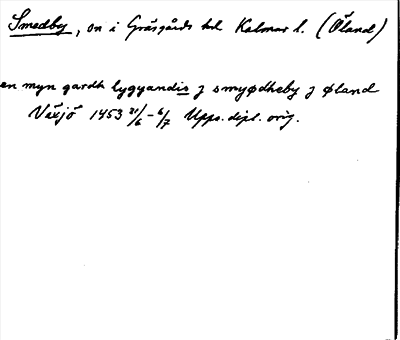 Smedby, sn i Gräsgårds hd Kalmar l. (Öland)
en myn gardh lygyandis j smyødheby j øland
Växjö 1453 21/6 - 6/7 Upps. dipl. orig.